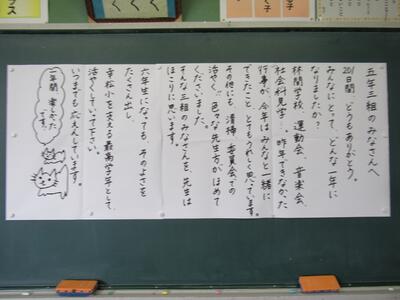 五年三組のみなさんへ
201日間、どうもありがとう。
みんなにとって、どんな一年に
なりましたか？
林間学校、運動会、音楽会、
社会科見学…、昨年できなかった
行事が、今年はみんなと一緒に
できたこと、とてもうれしく思っています。
その他にも、清掃、委員会での
活やく…。色々な先生方がほめて
くださいました。
そんな三組のみなさんを、先生は
ほこりに思います。
六年生になっても、そのよさを
たくさん出し、
幸松小を支える最高学年として、
活やくしていって下さい。
いつまでも応えんしています。
一年間、楽しかった
です。